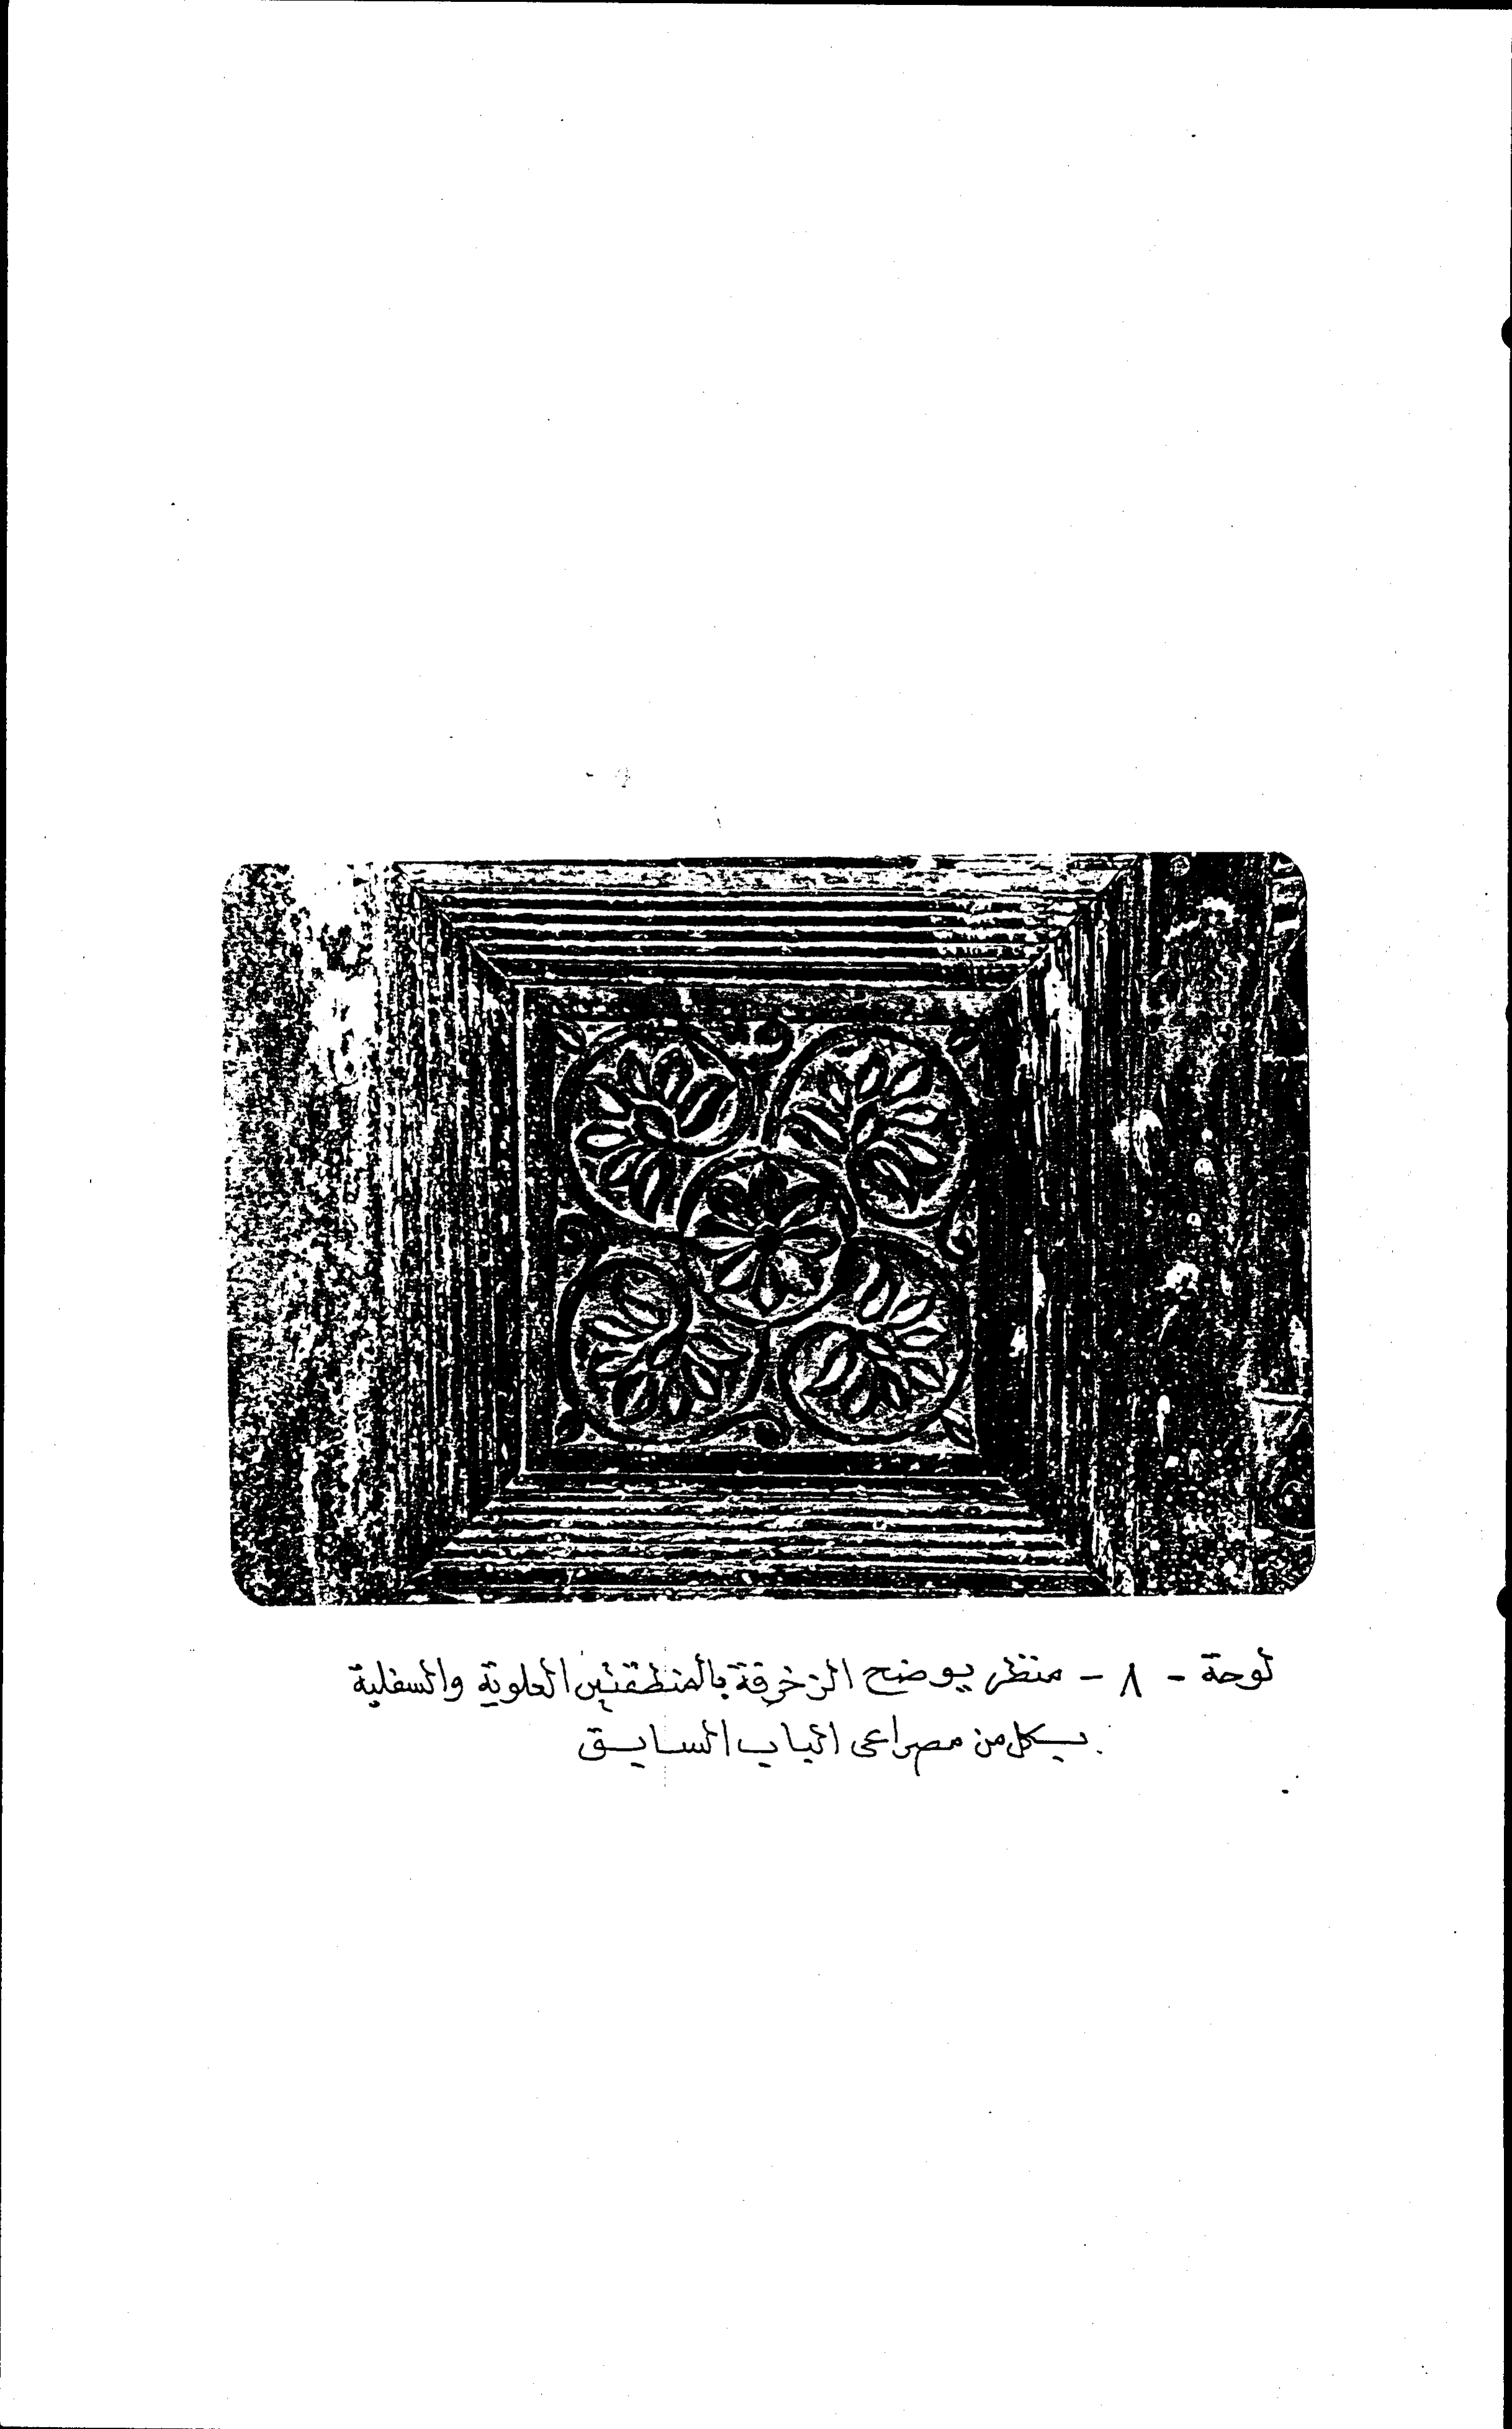 لوحة - ٨ - منظر يوضح الزخرفة بالمنطقتين العلوية والسفلية
بكل من مصراعى الباب السابق